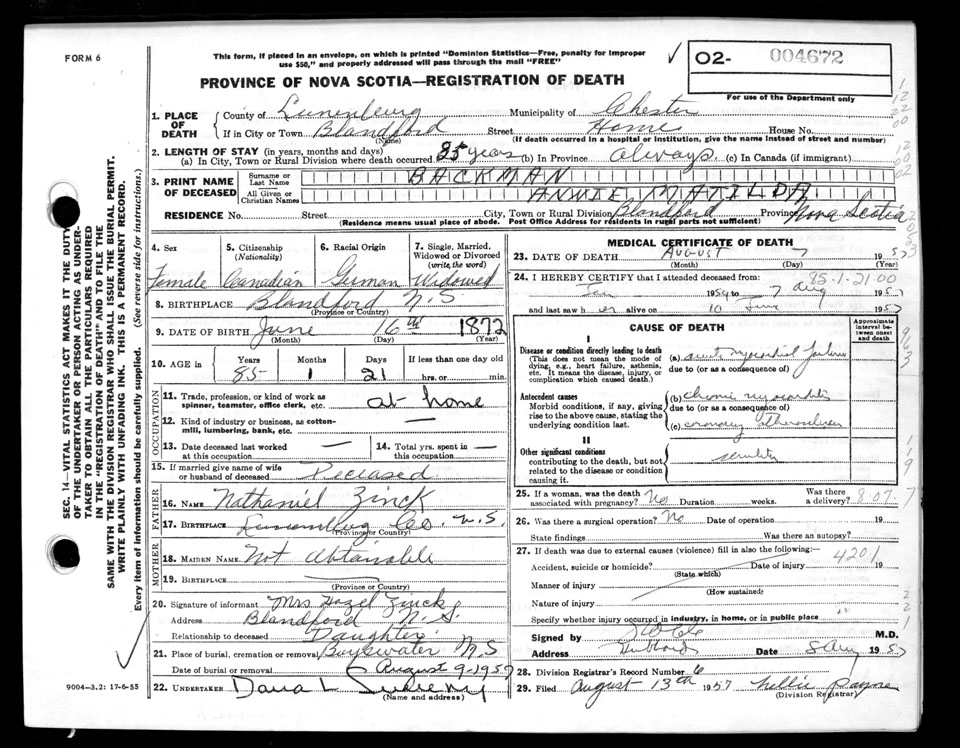 FORM 6
This form, if placed in an envelope, on which is printed "Dominion Statistics—Free, penalty for improper
use $50," and properly addressed will pass through the mail "FREE"
PROVINCE OF NOVA SCOTIA—REGISTRATION OF DEATH
02- 004672
For use of the Department only
1. PLACE OF DEATH County of Lunenburg Municipality of Chester
If in City or Town Blandford Street Home House No.
(Name) (If death occurred in a hospital or institution, give the name instead of street and number)
2. LENGTH OF STAY (in years, months and days)
(a) In City, Town or Rural Division where death occurred 85 years (b) In Province always. (c) In Canada (if immigrant)
3. PRINT NAME OF DECEASED Surname or Last Name BACKMAN
All Given or Christian Names ANNIE MATILDA
RESIDENCE No. Street City, Town or Rural Division Blandford Province Nova Scotia
(Residence means usual place of abode. Post Office Address for residents in rural parts not sufficient)
4. Sex Female
5. Citizenship (Nationality) Canadian
6. Racial Origin German
7. Single, Married, Widowed or Divorced (write the word) Widowed
8. BIRTHPLACE Blandford N.S
(Province or Country)
9. DATE OF BIRTH June 16th 1872
(Month) (Day) (Year)
10. AGE in Years 85 Months 1 Days 21 If less than one day old hrs. or min.
OCCUPATION
11. Trade, profession, or kind of work as spinner, teamster, office clerk, etc. at home
12. Kind of industry or business, as cotton-mill, lumbering, bank, etc. —
13. Date deceased last worked at this occupation —
14. Total yrs. spent in this occupation —
15. If married give name of wife or husband of deceased Deceased
FATHER
16. NAME Nathaniel Zinck
17. BIRTHPLACE Lunenburg Co. N.S.
(Province or Country)
MOTHER
18. MAIDEN NAME Not Obtainable
19. BIRTHPLACE —
(Province or Country)
20. Signature of informant Mrs Hazel Zinck
Address Blandford N.S.
Relationship to deceased Daughter
21. Place of burial, cremation or removal Bayswater N.S
Date of burial or removal August 9-1957
22. UNDERTAKER Dana L
(Name and address)
MEDICAL CERTIFICATE OF DEATH
23. DATE OF DEATH August 7 1957
(Month) (Day) (Year)
85-1-21-00
24. I HEREBY CERTIFY that I attended deceased from:
Jan 1954 to 7 Aug 1957
and last saw her alive on 10 1957
CAUSE OF DEATH
Approximate interval between onset and death
I
Disease or condition directly leading to death
(This does not mean the mode of dying, e.g., heart failure, asthenia, etc. It means the disease, injury, or complication which caused death.
(a) acute myocardial failure
due to (or as a consequence of)
Antecedent causes
Morbid conditions, if any, giving rise to the above cause, stating the underlying condition last.
(b) chronic myocarditis
due to (or as a consequence of)
(c) coronary
II
Other significant conditions
contributing to the death, but not related to the disease or condition causing it.
senility
25. If a woman, was the death associated with pregnancy? No Duration weeks. Was there a delivery?
26. Was there a surgical operation? No Date of operation 19
State findings Was there an autopsy?
27. If death was due to external causes (violence) fill in also the following:—
4201
Accident, suicide or homicide? Date of injury 19
(State which)
Manner of injury
(How sustained)
Nature of injury
Specify whether injury occurred in industry, in home, or in public place
Signed by M.D.
Address Hubbards Date 8 Aug 1957
28. Division Registrar's Record Number 6
29. Filed August 13th 1957 Nellie Payne
(Division Registrar)
SEC. 14—VITAL STATISTICS ACT MAKES IT THE DUTY
OF THE UNDERTAKER OR PERSON ACTING AS UNDER-
TAKER TO OBTAIN ALL THE PARTICULARS REQUIRED
IN THE "REGISTRATION OF DEATH" AND TO FILE THE
SAME WITH THE DIVISION REGISTRAR WHO SHALL ISSUE THE BURIAL PERMIT.
WRITE PLAINLY WITH UNFADING INK. THIS IS A PERMANENT RECORD.
Every item of information should be carefully supplied. (See reverse side for instructions.)
9004-3.2: 17-6-55